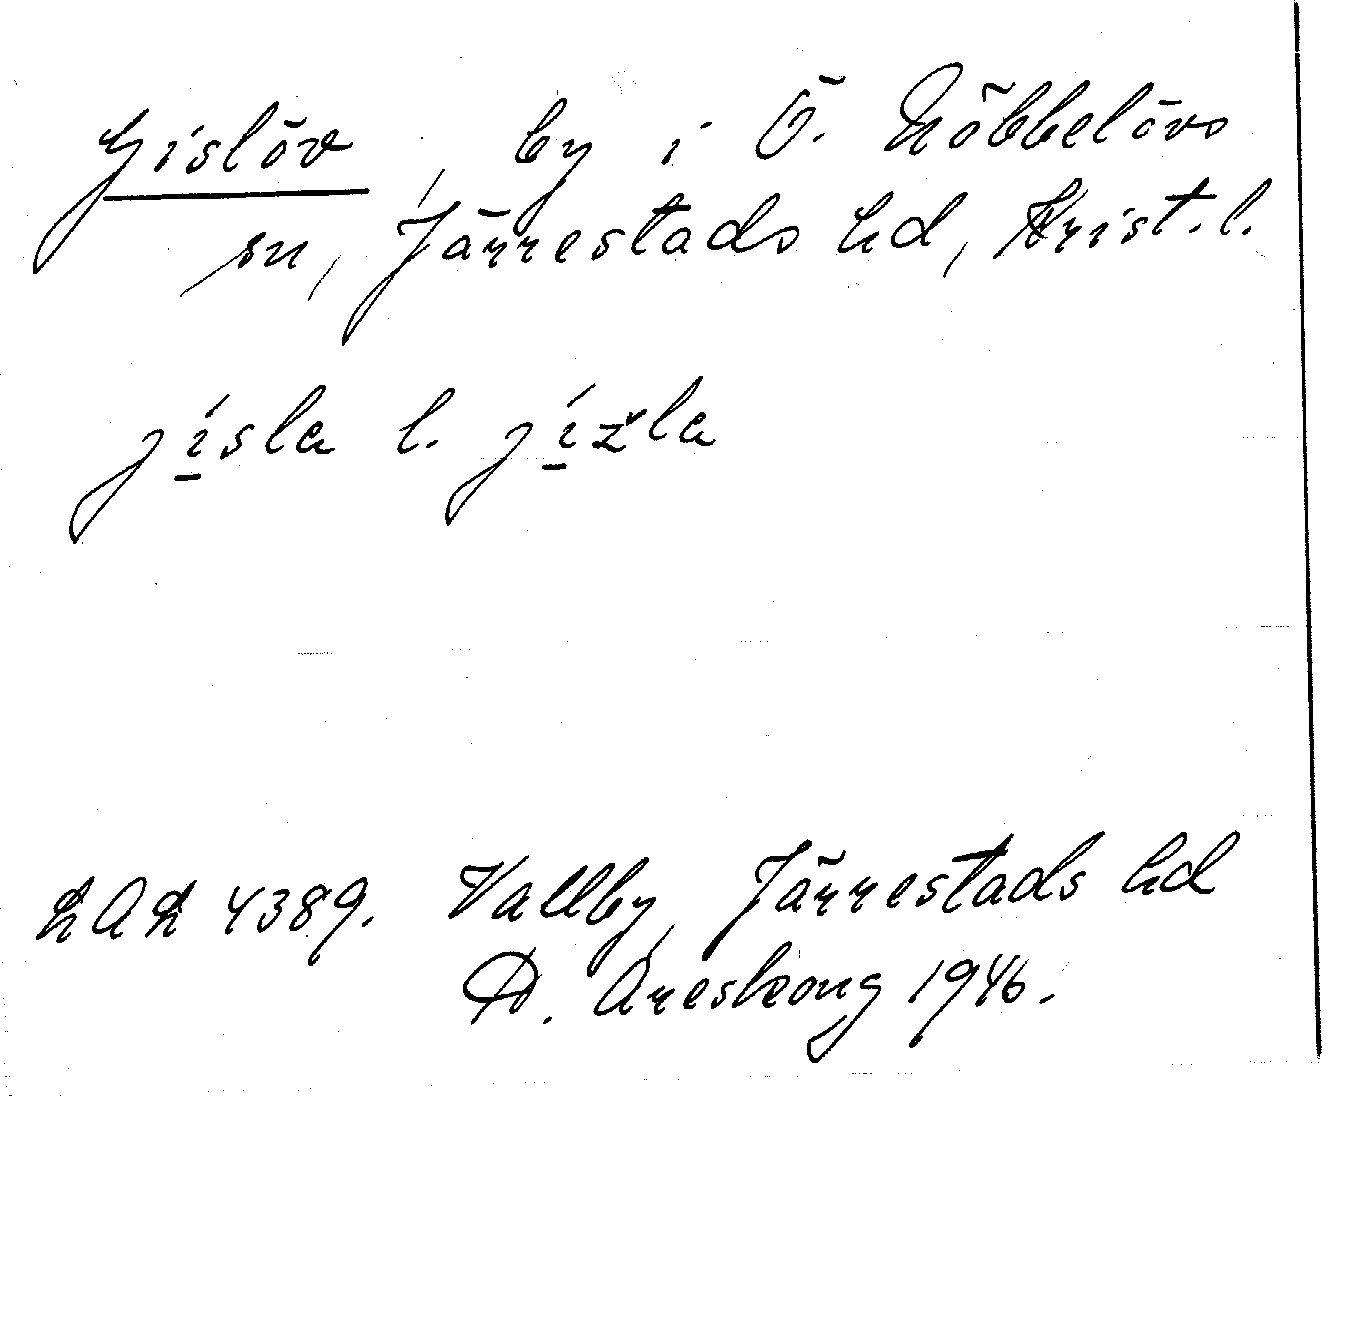 Gislöv, by i Ö. Nöbbelövs
sn, Järrestads hd, Krist. l.
jísla l. jížla
LAL 4389. Vallby, Järrestads hd
D. Areskoug 1946.